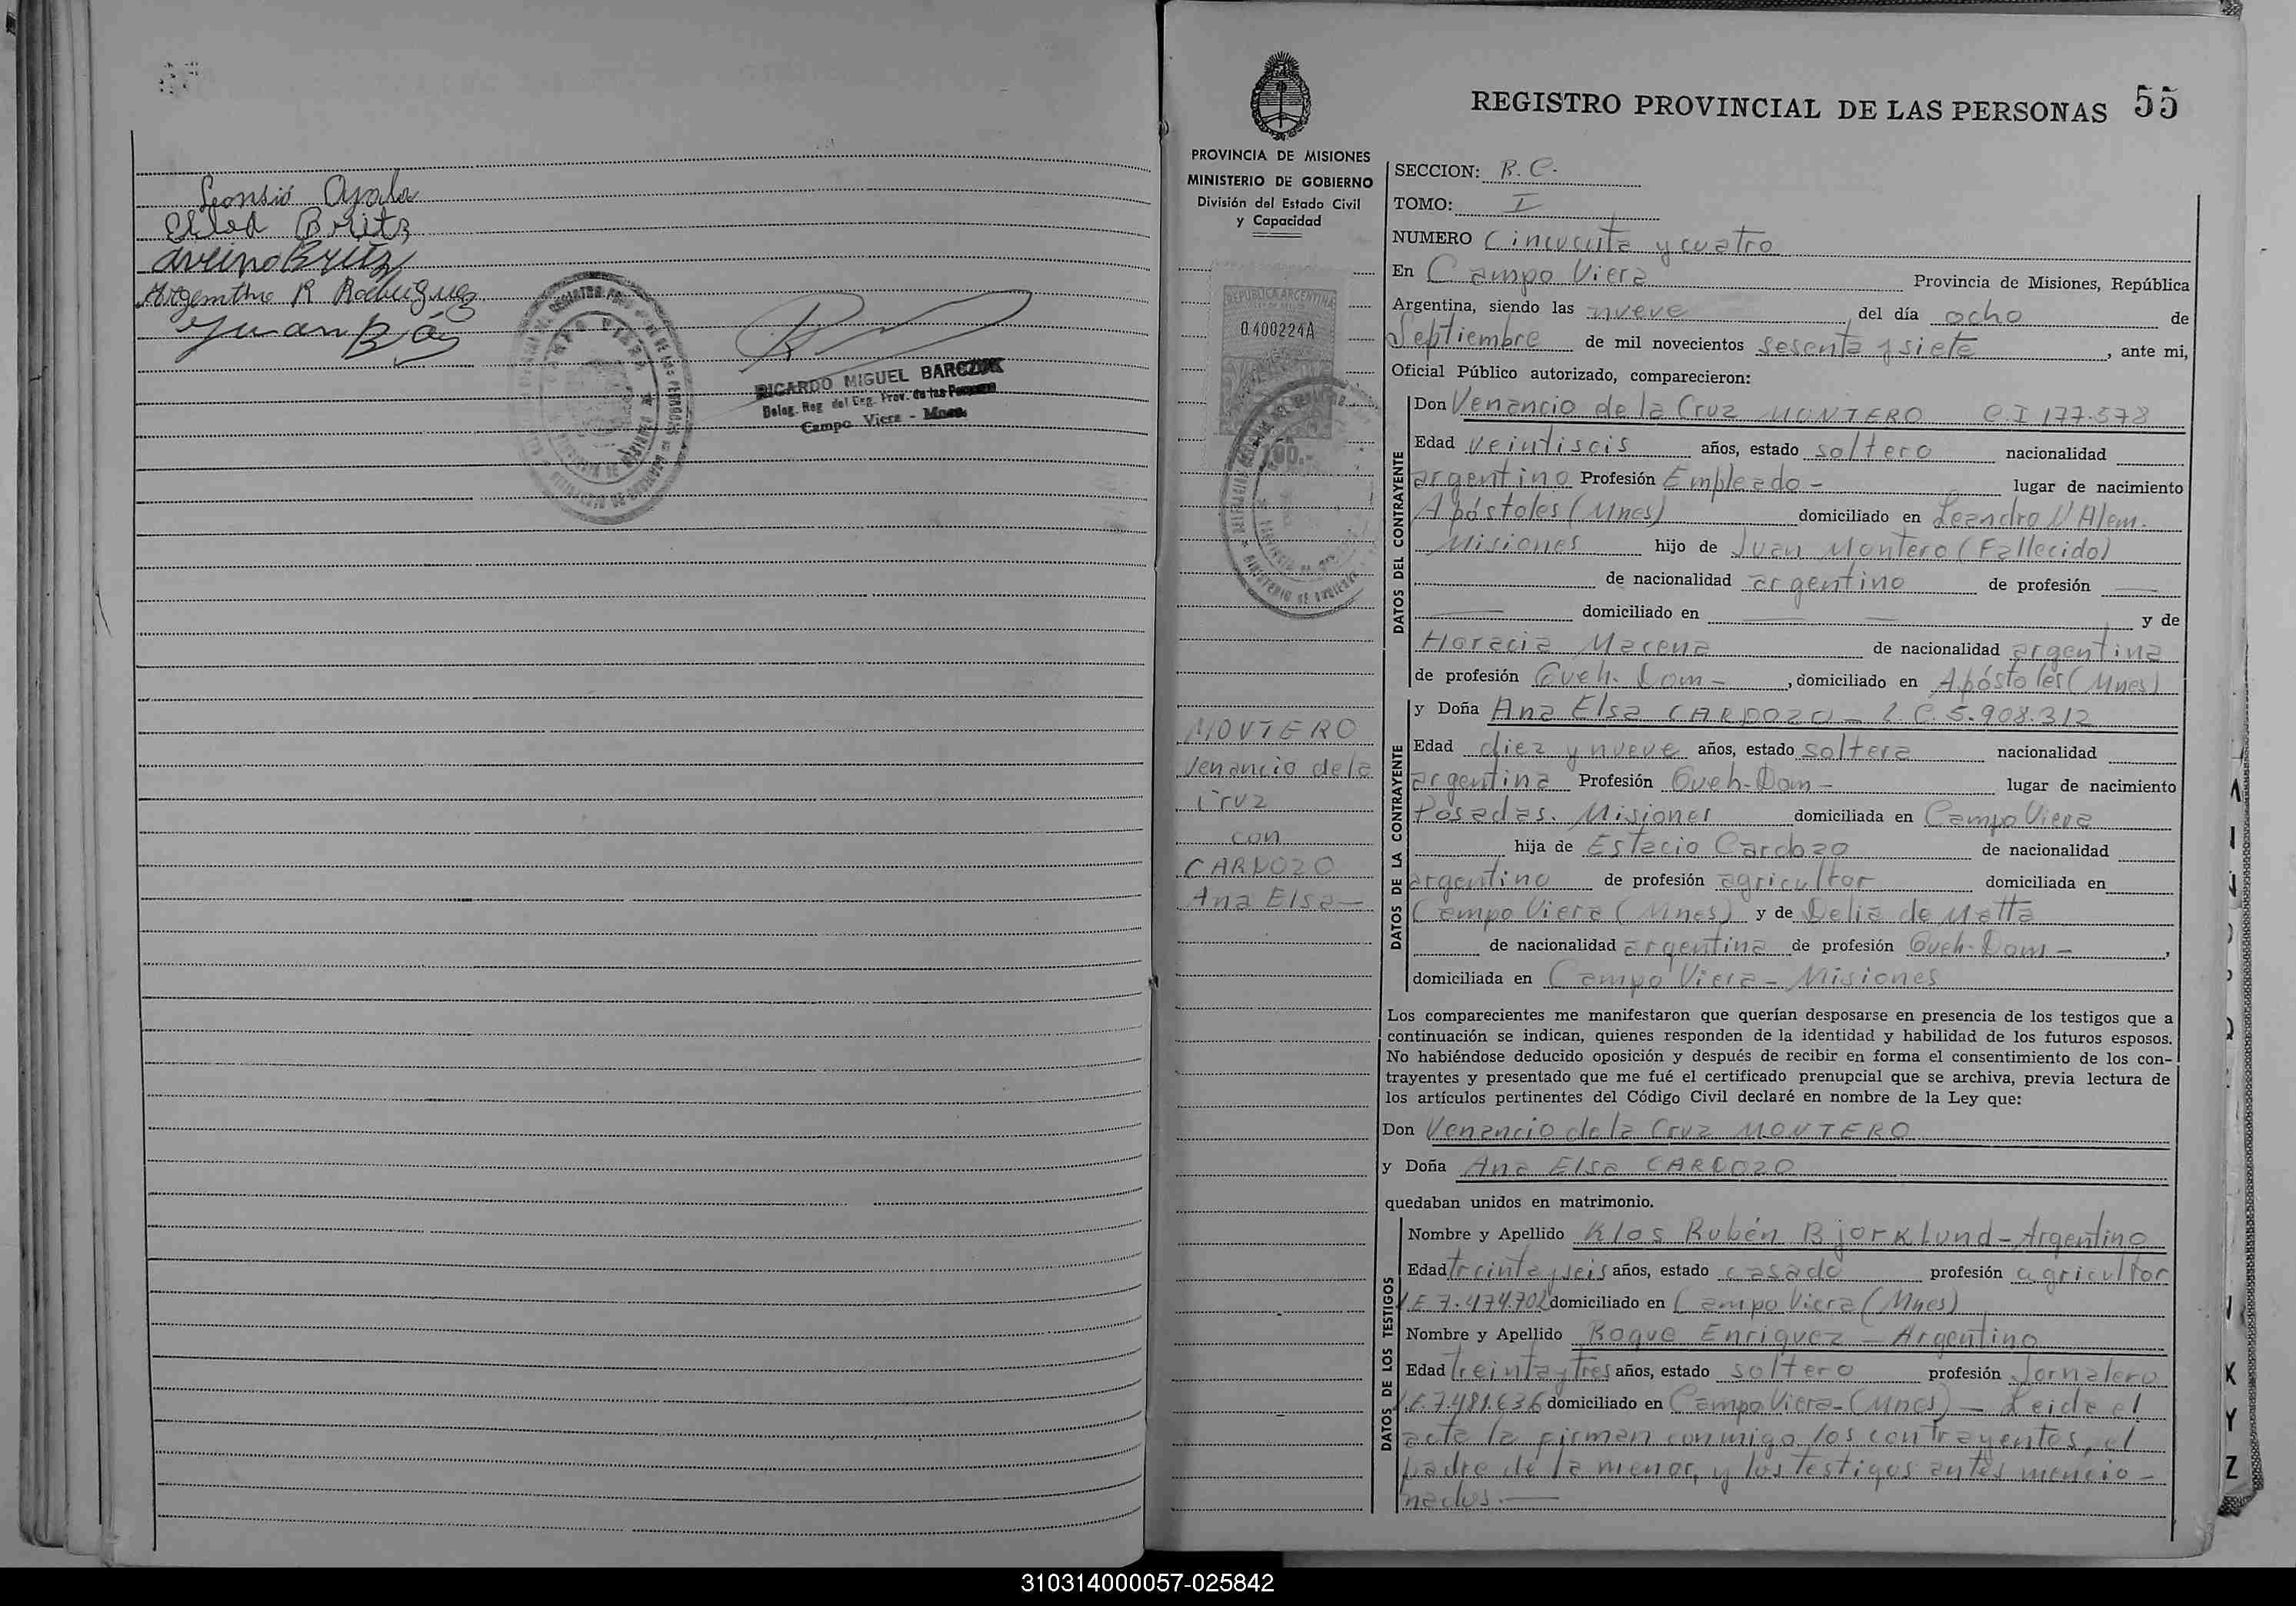 Leonsio Ayala
Elsed Britz
Avelino Britz
Argentino R Rodriguez
Juan B
RICARDO MIGUEL BARCZUK
Deleg. Reg. del Reg. Prov. de las Personas
Campo Viera - Mnes.
REGISTRO PROVINCIAL DE LAS PERSONAS 55
PROVINCIA DE MISIONES
MINISTERIO DE GOBIERNO
División del Estado Civil
y Capacidad
REPUBLICA ARGENTINA
0.400224A
100.-
MONTERO
Venancio de la
Cruz
con
CARDOZO
Ana Elsa
SECCION: R. C.
TOMO: I
NUMERO Cincuenta y cuatro
En Campo Viera Provincia de Misiones, República
Argentina, siendo las nueve del día ocho de
Septiembre de mil novecientos sesenta y siete, ante mi,
Oficial Público autorizado, comparecieron:
DATOS DEL CONTRAYENTE
Don Venancio de la Cruz MONTERO C.I 177.578
Edad veintiseis años, estado soltero nacionalidad
argentino Profesión Empleado - lugar de nacimiento
Apóstoles (Mnes) domiciliado en Leandro N Alem.
Misiones hijo de Juan Montero (Fallecido)
de nacionalidad argentino de profesión —
— domiciliado en — — y de
Horacia Macena de nacionalidad argentina
de profesión Queh. Dom -, domiciliado en Apóstoles (Mnes)
DATOS DE LA CONTRAYENTE
y Doña Ana Elsa CARDOZO - L.C. 5.908.312
Edad diez y nueve años, estado soltera nacionalidad
argentina Profesión Queh-Dom - lugar de nacimiento
Posadas. Misiones domiciliada en Campo Viera
hija de Estacio Cardozo de nacionalidad
argentino de profesión agricultor domiciliada en
Campo Viera (Mnes) y de Delia de Matta
de nacionalidad argentina de profesión Queh-Dom -,
domiciliada en Campo Viera - Misiones
Los comparecientes me manifestaron que querían desposarse en presencia de los testigos que a
continuación se indican, quienes responden de la identidad y habilidad de los futuros esposos.
No habiéndose deducido oposición y después de recibir en forma el consentimiento de los con-
trayentes y presentado que me fué el certificado prenupcial que se archiva, previa lectura de
los artículos pertinentes del Código Civil declaré en nombre de la Ley que:
Don Venancio de la Cruz MONTERO
y Doña Ana Elsa CARDOZO
quedaban unidos en matrimonio.
DATOS DE LOS TESTIGOS
Nombre y Apellido Klas Rubén Bjorklund - Argentino
Edad treinta y seis años, estado casado profesión agricultor
L.E 7.474.702 domiciliado en Campo Viera (Mnes)
Nombre y Apellido Roque Enriquez - Argentino
Edad treinta y tres años, estado soltero profesión Jornalero
L.E. 7.481.636 domiciliado en Campo Viera - (Mnes) - Leida el
acta la firman conmigo los contrayentes, el
padre de la menor, y los testigos antes mencio-
nados. —
K
Y
Z
310314000057-025842